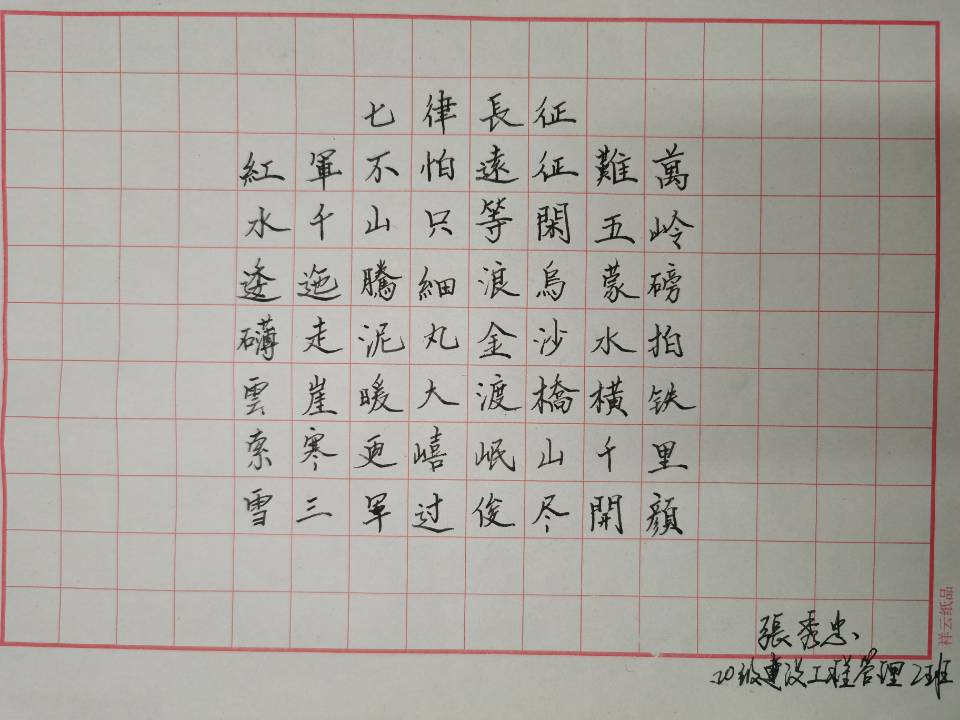 七律長征
紅軍不怕遠征難萬
水千山只等閑五岭
逶迤騰細浪烏蒙磅
礴走泥丸金沙水拍
雲崖暖大渡橋橫铁
索寒更嘻岷山千里
雪三軍过俊尽開顔
張秀忠
20级建设工程管理2班
祥云纸品